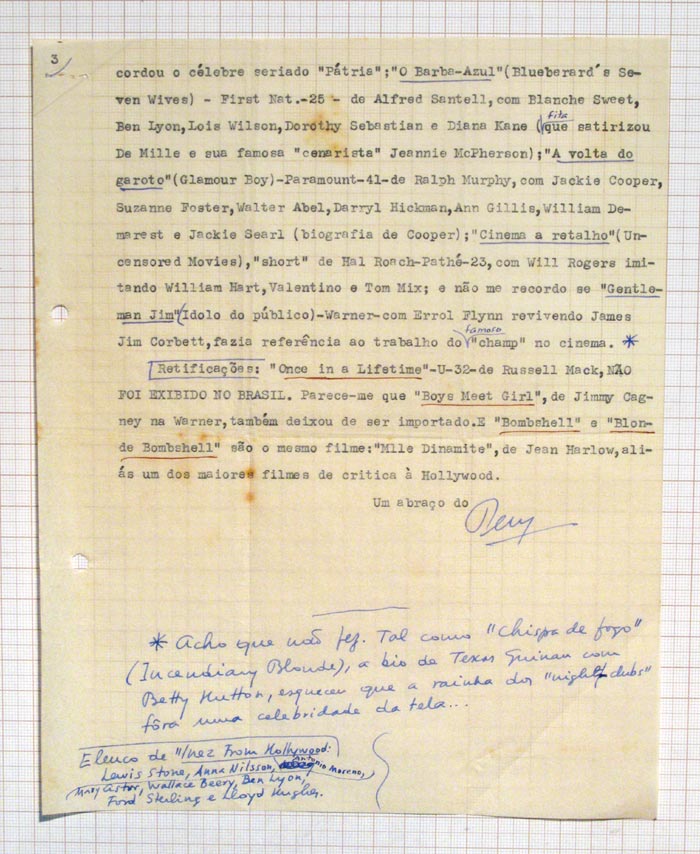 3
cordou o célebre seriado "Pátria";"O Barba-Azul"(Blueberard's Se-
ven Wives) - First Nat.-25 - de Alfred Santell,com Blanche Sweet,
Ben Lyon,Lois Wilson,Dorothy Sebastian e Diana Kane (fita que satirizou
De Mille e sua famosa "cenarista" Jeannie McPherson);"A volta do
garoto"(Glamour Boy)-Paramount-41-de Ralph Murphy,com Jackie Cooper,
Suzanne Foster,Walter Abel,Darryl Hickman,Ann Gillis,William De-
marest e Jackie Searl (biografia de Cooper);"Cinema a retalho"(Un-
censored Movies),"short" de Hal Roach-Pathé-23,com Will Rogers imi-
tando William Hart,Valentino e Tom Mix; e não me recordo se "Gentle-
man Jim"(Idolo do público)-Warner-com Errol Flynn revivendo James
Jim Corbett,fazia referência ao trabalho do famoso "champ" no cinema. *
Retificações: "Once in a Lifetime"-U-32-de Russell Mack,NÃO
FOI EXIBIDO NO BRASIL. Parece-me que "Boys Meet Girl", de Jimmy Cag-
ney na Warner,também deixou de ser importado.E "Bombshell" e "Blon-
de Bombshell" são o mesmo filme:"Mlle Dinamite",de Jean Harlow,ali-
ás um dos maiores filmes de critica à Hollywood.
Um abraço do
Pery
* Acho que não fez. Tal como "Chispa de fogo"
(Incendiary Blonde), a bio de Texas Guinan com
Betty Hutton, esqueceu que a rainha dos "night clubs"
fôra uma celebridade da tela...
Elenco de "Inez From Hollywood:
Lewis Stone, Anna Nilsson, Antonio Moreno,
Mary Astor, Wallace Beery, Ben Lyon,
Ford Sterling e Lloyd Hughes.